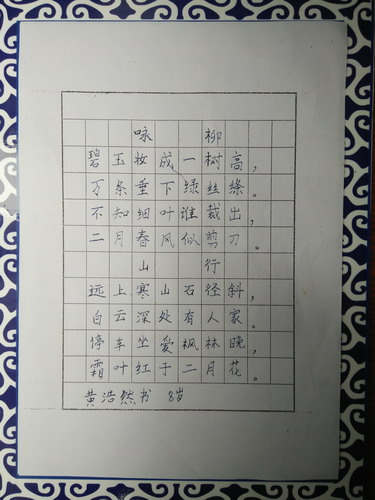 咏柳
碧玉妆成一树高，
万条垂下绿丝绦。
不知细叶谁裁出，
二月春风似剪刀。
山行
远上寒山石径斜，
白云深处有人家。
停车坐爱枫林晚，
霜叶红于二月花。
黄浩然书 8岁